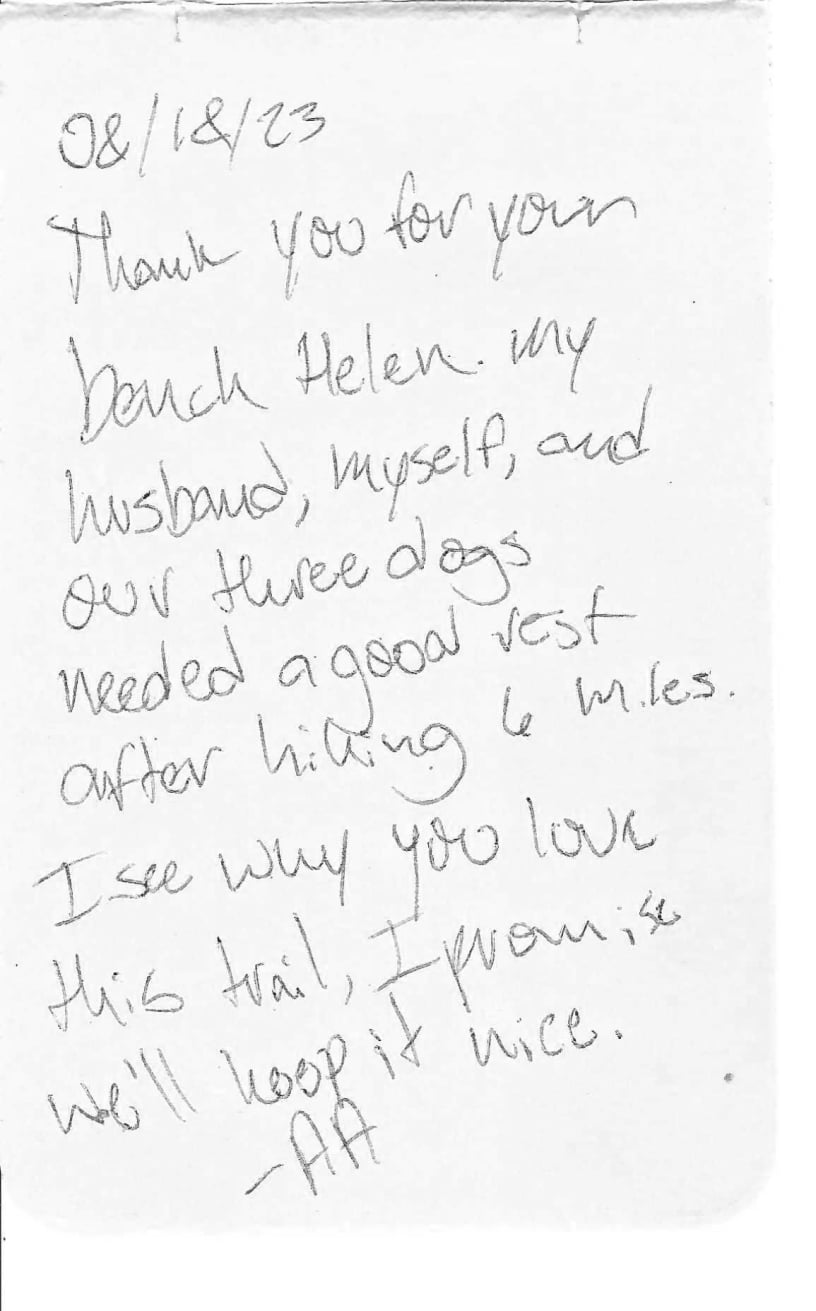 08/18/23
Thank you for your
bench Helen. My
husband, myself, and
our three dogs
needed a good rest
after hiking 6 miles.
I see why you love
this trail, I promise
we'll keep it nice.
-AA